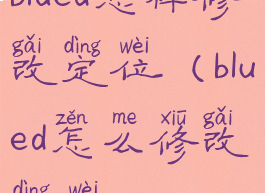 blued怎样修
gǎi dìng wèi
改定位（blu
zěn me xiū gǎi
ed怎么修改
dìng wèi